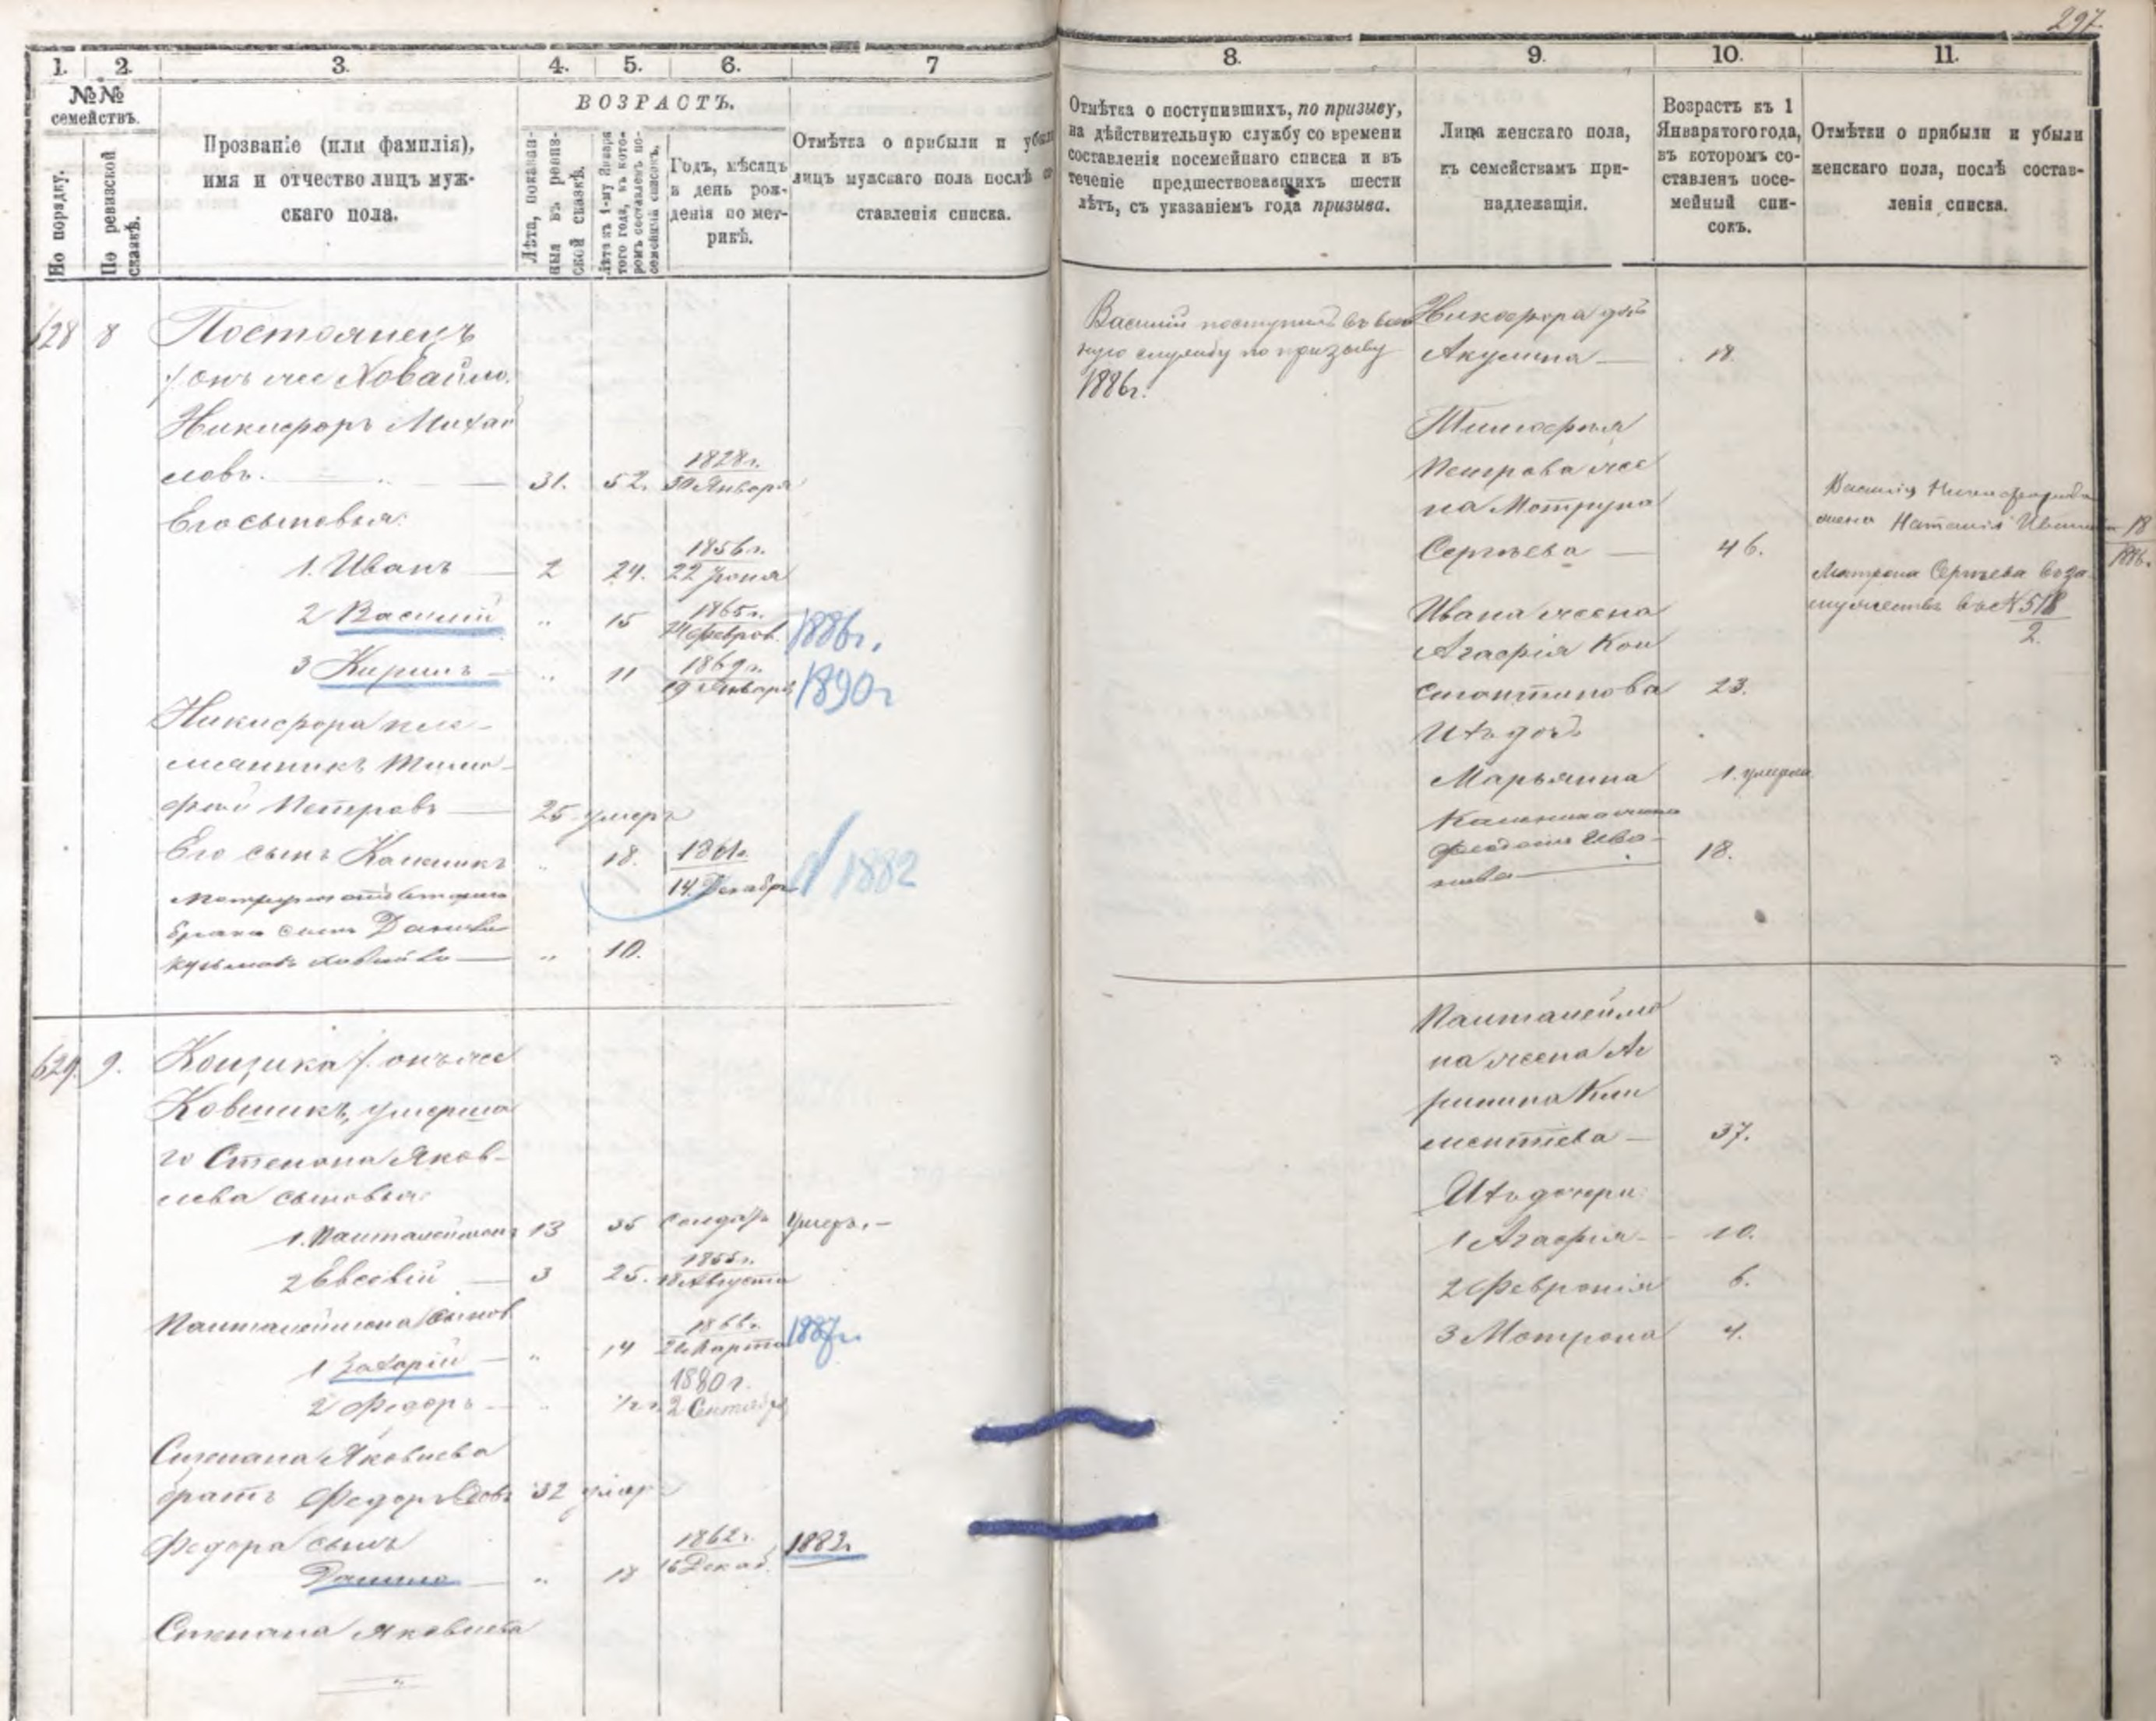 297.
1. 2. 3. 4. 5. 6. 7
№№ семействъ.
По порядку.
По ревизской сказкѣ.
Прозваніе (или фамилія),
имя и отчество лицъ муж-
скаго пола.
ВОЗРАСТЪ.
Лѣта, показан-
ныя въ ревиз-
ской сказкѣ.
Лѣта къ 1-му Января
того года, въ кото-
ромъ составленъ по-
семейный списокъ.
Годъ, мѣсяцъ
и день рож-
денія по мет-
рикѣ.
Отмѣтка о прибыли и убыли
лицъ мужскаго пола послѣ со-
ставленія списка.
628 8 Постоянецъ
онъ же Ховайло.
Никифоръ Михай
ловъ. 31. 52. 1828г.
30 Января
Его сыновья:
1. Иванъ 2 24. 1856г.
22 Іюня
2 Василій " 15 1865г.
Феврал. 1886г.
3 Кирилъ " 11 1869г.
19 Января 1890г
Никифора пле-
мянникъ Тимо-
фей Петровъ 25 умеръ
Его сынъ Калиникъ " 18. 1861г.
14 Декабря 1882
брака сынъ Данило
" 10.
629. 9. Коцика онъ же
Ковшикъ, умерша
го Степана Яков-
лева сыновья:
1. Пантелеймонъ 13 35 солдатъ умеръ.-
2 Евсевій 3 25. 1855г.
18 Августа
Пантелеймона сынов
1 Захарій " 14 1866г.
Марта 1887г.
2 Федоръ " 1/2 г. 1880г.
2 Сентября
Степана Яковлева
братъ Федоръ 32 умеръ
Федора сынъ
Данило " 18 1862г.
16 Декаб. 1882
Степана Яковлева
8. 9. 10. 11.
Отмѣтка о поступившихъ, по призыву,
на дѣйствительную службу со времени
составленія посемейнаго списка и въ
теченіе предшествовавшихъ шести
лѣтъ, съ указаніемъ года призыва.
Лица женскаго пола,
къ семействамъ при-
надлежащія.
Возрастъ къ 1
Января того года,
въ которомъ со-
ставленъ посе-
мейный спи-
сокъ.
Отмѣтки о прибыли и убыли
женскаго пола, послѣ состав-
ленія списка.
Василій поступилъ въ воен
ную службу по призыву
1886г.
Никифора доч
Акулина 18.
Тимофея
Петрова же
на Мотруна
Сергѣева 46.
Ивана жена
Агафія Кон
стантинова 23.
Ихъ доч.
Марьянна 1. умерла
Калиника жена
Феодосія Ива-
нова 18.
Василія Никифорова
жена Наталія Иванова 18
1886.
Матрона Сергѣева въ за-
мужествѣ въ № 518
2.
Пантелеймо
на жена Ак
рипина Кли
ментіева 37.
Ихъ дочери
1 Агафія 10.
2 Февронія 6.
3 Мотрона 4.